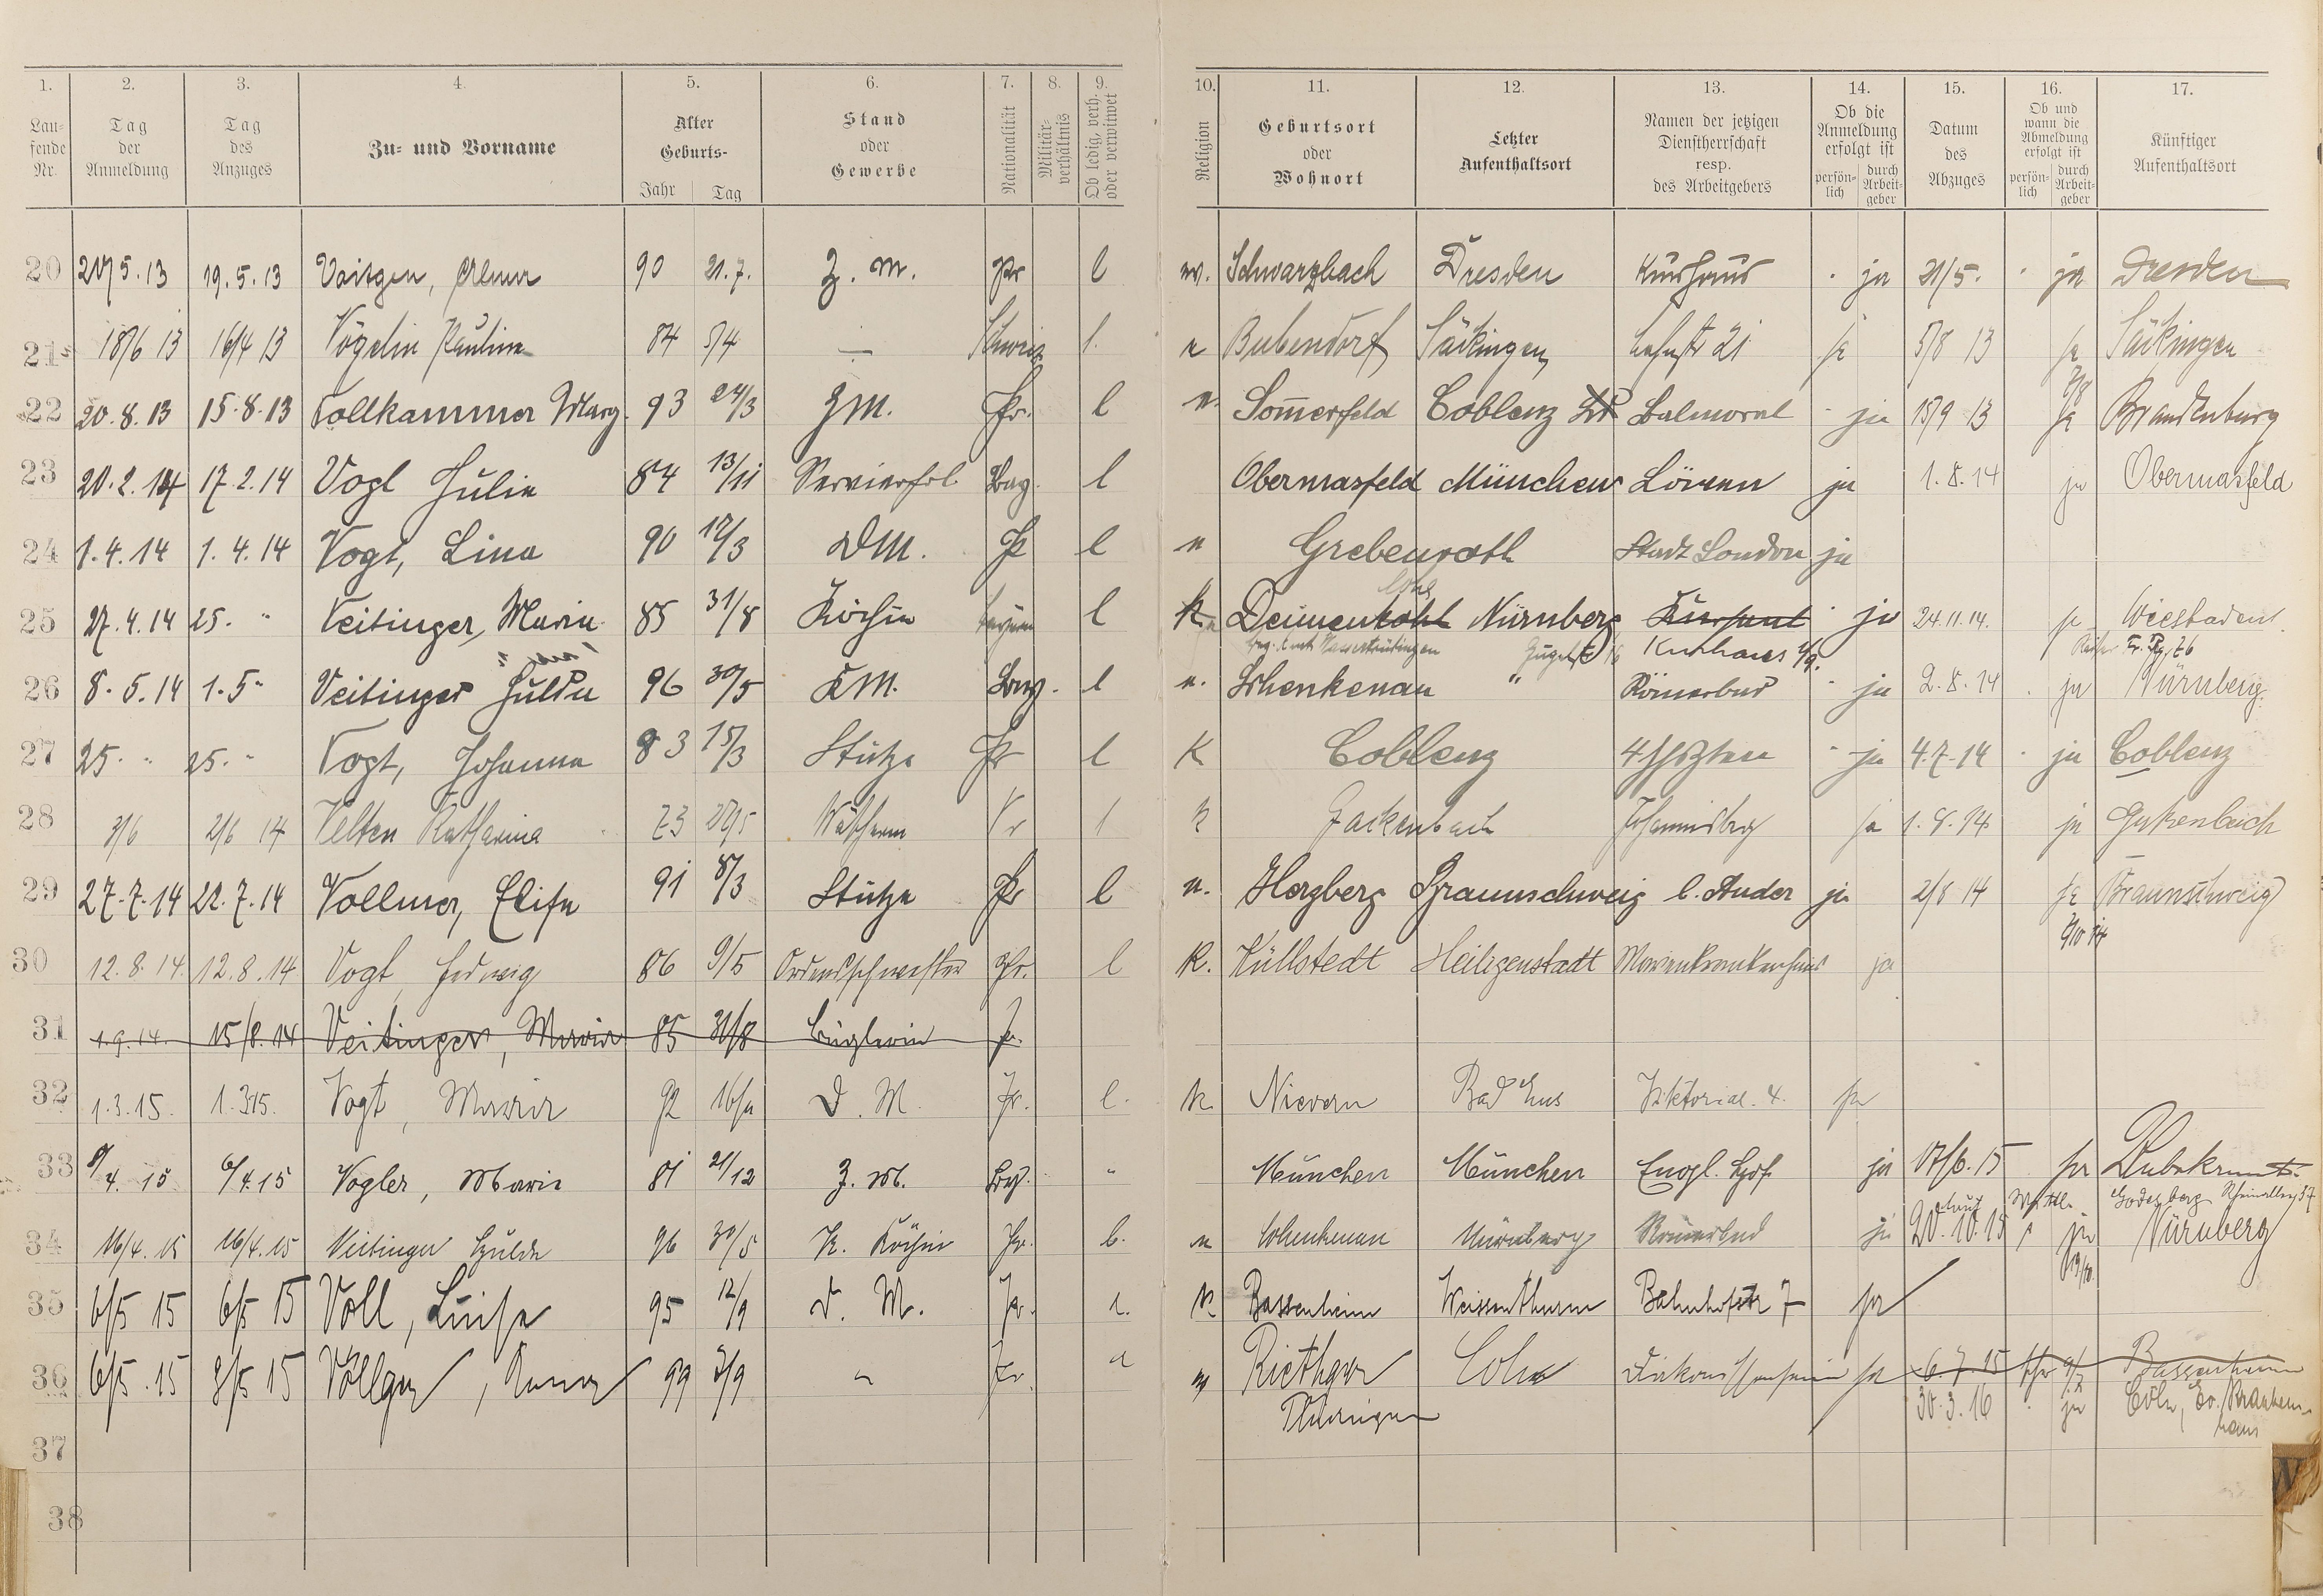 1. 2. 3. 4. 5. 6. 7. 8. 9. 10. 11. 12. 13. 14. 15. 16. 17.
Laufende Nr. Tag der Anmeldung Tag des Anzuges Zu- und Vorname Alter Geburts- Jahr Tag Stand oder Gewerbe Nationalität Militärverhältnis Ob ledig, verh. oder verwitwet Religion Geburtsort oder Wohnort Letzter Aufenthaltsort Namen der jetzigen Dienstherrschaft resp. des Arbeitgebers Ob die Anmeldung erfolgt ist persönlich durch Arbeitgeber Datum des Abzuges Ob und wann die Abmeldung erfolgt ist persönlich durch Arbeitgeber Künftiger Aufenthaltsort
20 19.5.13 90 21.7. Z. M. Pr l Schwarzbach Dresden Kurhaus ja 21/5. ja Dresden
21 18/6 13 16/4 13 Vögelin Pauline 84 5/4 — Schweiz l. Bubendorf Säckingen 21 ja 5/8 13 ja Säkingen
22 20.8.13 15.8.13 Vollkammer Marg. 93 24/3 ZM. Pr. l Somerfeld Coblenz Balmoral ja 15/9 13 ja Brandenburg
23 20.2.14 17.2.14 Vogl Julie 84 13/11 Servierfrl Bay. l Obermasfeld München Löwen ja 1.8.14 ja Obermasfeld
24 1.4.14 1.4.14 Vogt, Lina 90 17/3 DM. Pr l Grebenroth Stadt London ja
25 27.4.14 25. " Veitinger, Maria 85 31/8 Köchin Bayern l k Deimenkohl Nürnberg Kurhaus ja 24.11.14. ja Wiesbaden
Wassertrüdingen Kurhaus
26 8.5.14 1.5 " Veitinger Hulda 96 30/5 KM. Bay. l Schenkenau " Römerbad ja 2.8.14 ja Nürnberg.
27 25. " 25. " Vogt, Johanna 83 15/3 Stütze Pr l K Coblenz 4 Jahrszten ja 4.7.14 ja Coblenz
28 3/6 2/6 14 Velten Katharina 73 Pr l k Gackenbach Johannisberg ja 1.8.14 ja Gackenbach
29 27.7.14 22.7.14 Vollmer, Elise 91 8/3 Stütze Pr l Herzberg Braunschweig b. Auder ja 2/8 14 ja Braunschweig
30 12.8.14. 12.8.14 Vogt, Hedwig 86 9/5 Ordensschwester Pr. l K. Küllstedt Heiligenstadt Marienkrankenhaus ja
31 1.9.14. 15/8.14 Veitinger, Maria 85 31/8 Büglerin Pr.
32 1.3.15. 1.3.15. Vogt, Maria 92 D. M. Pr. l. k. Nievern Bad Ems Viktoriaal. 4. ja
33 8/4.15 6/4.15 Vogler, Marie 81 21/12 Z. M. Bay. " München München Engl. Hof ja 17/6.15 ja Unbekannt.
Godesberg
34 16/4.15 16/4.15 Veitinger Hulda 96 30/5 K. Köchin Pr. l. Schenkenau Nürnberg Römerbad ja 20.10.15 ja Nürnberg
19/10.
35 6/5 15 6/5 15 Voll, Luise 95 12/9 D. M. Pr. l. k Bassenheim Weissenthurm Bahnhofstr 7 ja
36 6/5.15 15 Anna 99 " Pr. " Riethgen Thüringen Coln Diakonissenheim ja 6.7.15 Bassenheim
30.3.16 ja Cöln, Ev. Krankenhaus
37
38